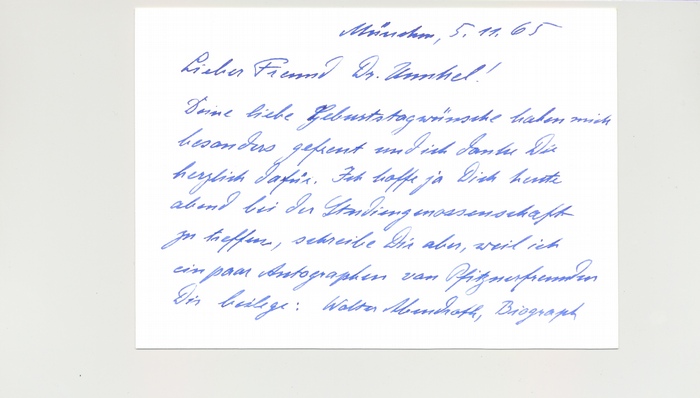 München, 5. 11. 65
Lieber Freund Dr. !
Deine liebe Geburtstagwünsche haben mich
besonders gefreut und ich danke Dir
herzlich dafür. Ich hoffe ja Dich heute
abend bei der Studiengenossenschaft
zu treffen, schreibe Dir aber, weil ich
ein paar Autographen von Pfitznerfreunden
Dir beilege: Walter Abendroth, Biograph